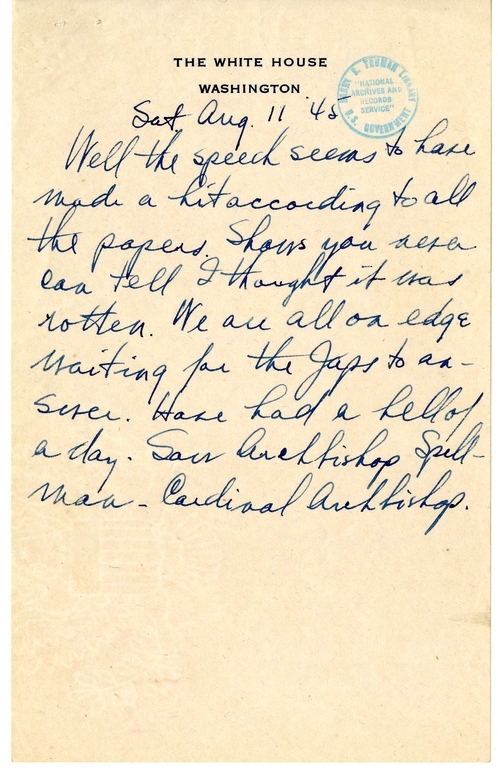 THE WHITE HOUSE
WASHINGTON
HARRY S. TRUMAN LIBRARY
"NATIONAL
ARCHIVES AND
RECORDS
SERVICE"
U.S. GOVERNMENT
Sat Aug. 11 '45
Well the speech seems to have
made a hit according to all
the papers. Shows you never
can tell I thought it was
rotten. We are all on edge
waiting for the Japs to an-
swer. Have had a hell of
a day. Saw Archbishop Spell-
man - Cardinal Archbishop.